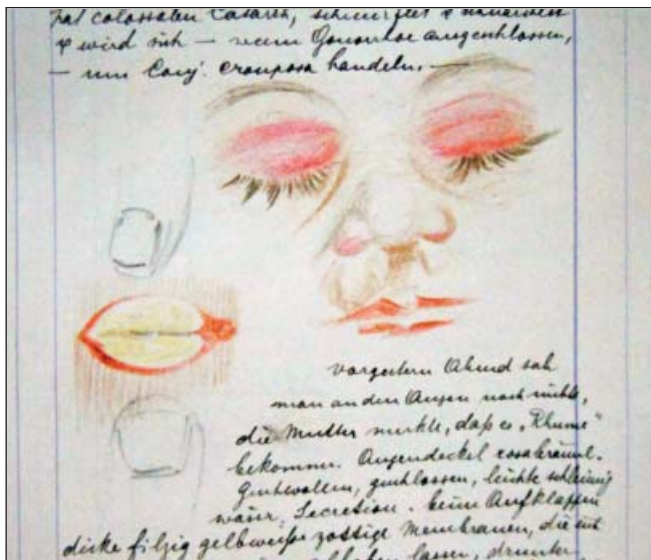 hat colossalen Catarrh,
& wird sich — wenn Gonorrhoe ausgeschlossen,
— um Conj. crouposa handeln. —
vorgestern Abend sah
man an den Augen noch nichts,
die Mutter merkte, daß es „Rhume“
bekomme. Augendeckel rosabräunl.
geschwollen, geschlossen, leichte schleimig
wässr. Secretion. beim Aufklappen
dicke filzig gelbweiße zottige Membranen, die sich
lassen, drunter